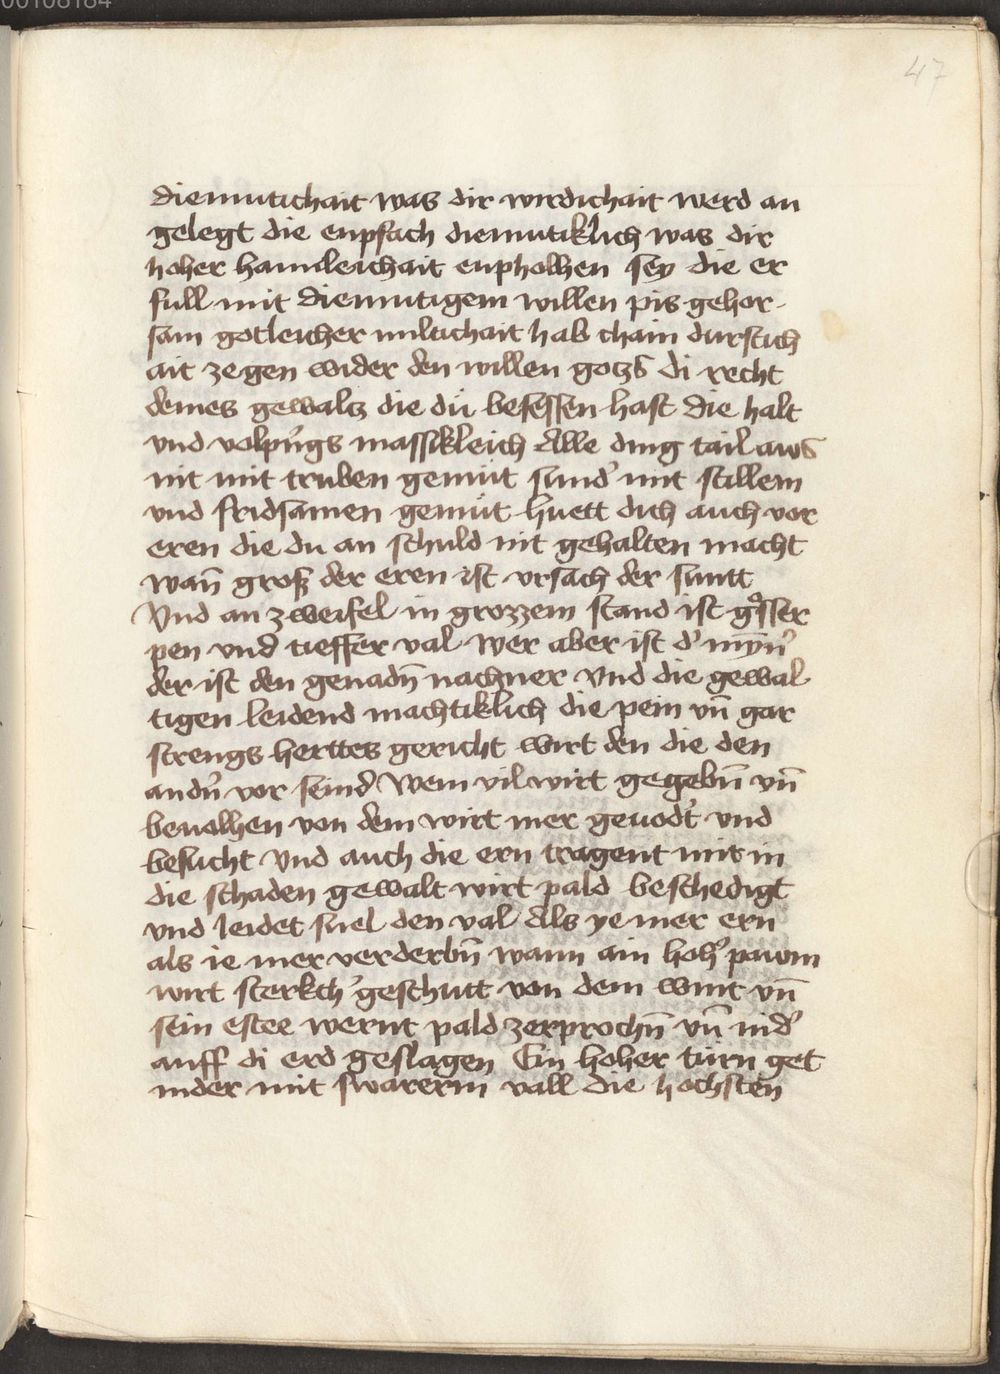 00108184
47
diemutichait was dir wirdichait werd an
gelegt die enpfach diemutiklich was dir
hoher hamleichait enpholhen sey die er
full mit diemutigem willen pis gehor-
sam gotleicher miltichait hab chain durstich
ait zegen wider den willen gotzs di recht
deines gewaltz die du besessen hast die halt
vnd volpṙngs massikleich Alle ding tail aws
nit mit truben gemüt sund' mit stillem
vnd fridsamen gemüt huett dich auch vor
eren die du an schuld nit gehalten macht
wan̄ groß der eren ist vrsach der suntt
Vnd an zweifel in grozzem stand ist gͦsser
pen vnd tieffer val wer aber ist d' myn̄'
der ist den genadn̄ nachner Vnd die gewal
tigen leidend machtiklich die pein vn̄ gar
strengs herttes gericht wirt den die den
andn̄' vor seind Wem vil wirt gegebn̄ vn̄
beuolhen von dem wirt mer geuodt' vnd
besucht Vnd auch die ern tragent mit in
die schaden gewalt wirt pald beschedigt
vnd leidet snel den val Als ye mer ern
als ie mer verderbn̄ wann ain hoh' pawm
wirt sterkch' geschutt von dem wint vn̄
sein estee wernt pald zerprochn̄ vn̄ nid'
auff di erd geslagen Ein hoher turn get
nider mit swarerm vall die hochsten